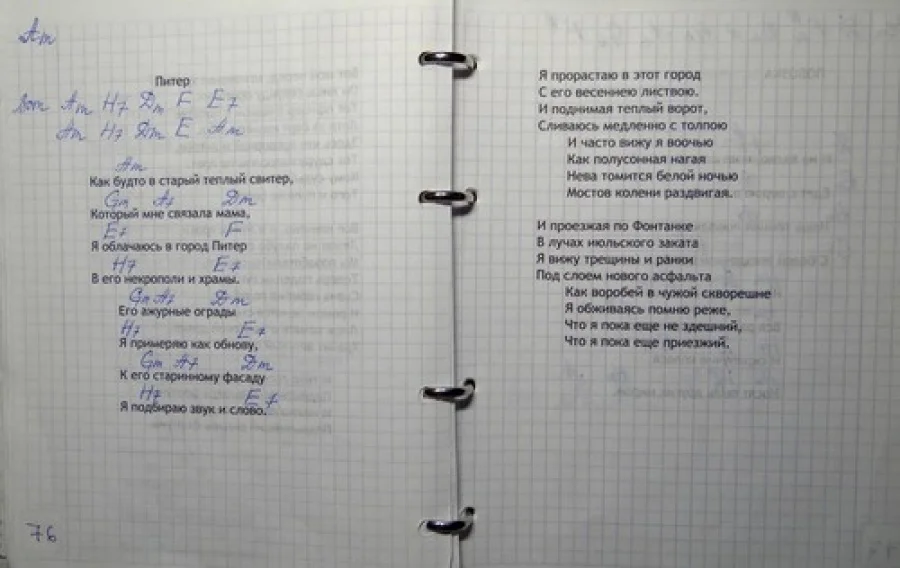 Am
Питер
Am H7 Dm F E7
Am H7 Dm E Am
Am
Как будто в старый теплый свитер,
Gm A7 Dm
Который мне связала мама,
E7 F
Я облачаюсь в город Питер
H7 E7
В его некрополи и храмы.
Gm A7 Dm
Его ажурные ограды
H7 E7
Я примеряю как обнову,
Gm A7 Dm
К его старинному фасаду
H7 E7
Я подбираю звук и слово.
76
Я прорастаю в этот город
С его весеннею листвою.
И поднимая теплый ворот,
Сливаюсь медленно с толпою
И часто вижу я воочью
Как полусонная нагая
Нева томится белой ночью
Мостов колени раздвигая.
И проезжая по Фонтанке
В лучах июльского заката
Я вижу трещины и ранки
Под слоем нового асфальта
Как воробей в чужой скворешне
Я обживаясь помню реже,
Что я пока еще не здешний,
Что я пока еще приезжий.